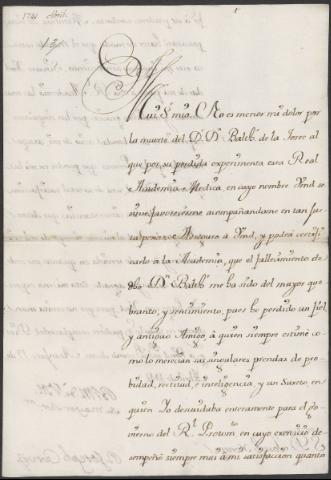 1741 Abril.
13
Mui Sr. mio. No es menor mi dolor por
la muerte del D.r Dn. Balth.r de la Torre al
que por su perdida experimenta esa Real
Academia Medica, en cuyo nombre Vmd se
sirve favorecerme acompañandome en tan
y podrá certifi-
carlo a la Academia, que el fallecimiento de
dho Dn. Balth.r me ha sido del mayor que-
branto, y sentimiento, pues he perdido un fiel
y antiguo Amigo, á quien siempre estimé co-
mo lo merecian sus singulares prendas de pro-
bidad, rectitud, è inteligencia, y un Sugeto, en
quien Yo descuidaba enteramente para el go-
vierno del R.l Protom.to en cuyo exercicio de-
sempeñó siempre mui á mi satisfaccion quanto